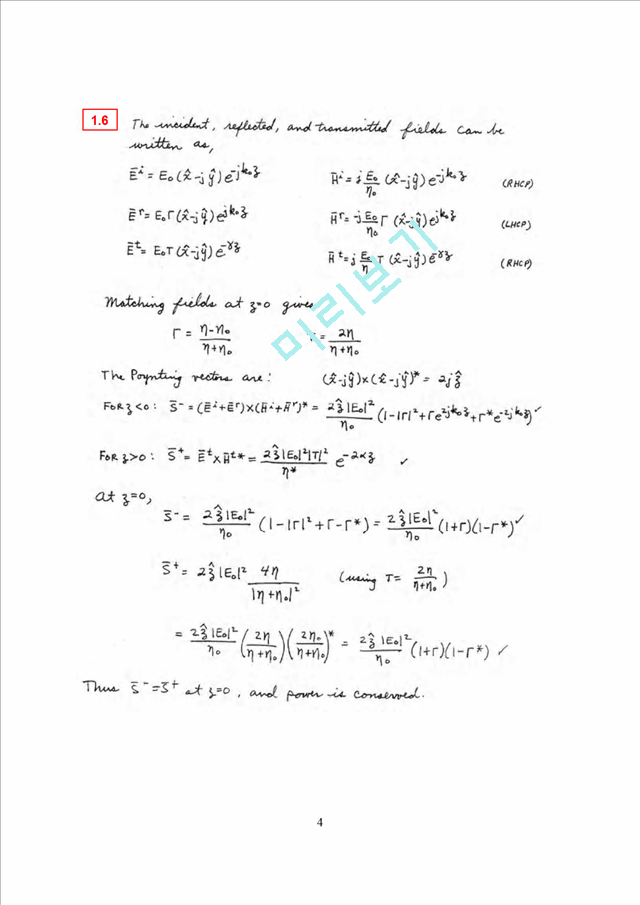 1.6 The incident, reflected, and transmitted fields can be
written as,
Ēⁱ = E₀(x̂-jŷ)e^-jk₀z   H̄ⁱ = j E₀/η₀ (x̂-jŷ)e^-jk₀z   (RHCP)
Ēʳ = E₀Γ(x̂-jŷ)e^jk₀z   H̄ʳ = -j E₀/η₀ Γ (x̂-jŷ)e^jk₀z   (LHCP)
Ēᵗ = E₀T(x̂-jŷ)e^-γz   H̄ᵗ = j E₀/η T (x̂-jŷ)e^-γz   (RHCP)
Matching fields at z=0 gives
Γ = (η-η₀)/(η+η₀)   = 2η/(η+η₀)
미리보기
The Poynting vectors are: (x̂-jŷ)×(x̂-jŷ)* = 2jẑ
FOR z<0: S̄⁻ = (Ēⁱ+Ēʳ)×(H̄ⁱ+H̄ʳ)* = 2ẑ|E₀|²/η₀ (1-|Γ|²+Γe^2jk₀z-Γ*e^-2jk₀z) ✓
FOR z>0: S̄⁺ = Ēᵗ×H̄ᵗ* = 2ẑ|E₀|²|T|²/η* e^-2αz ✓
at z=0,
S̄⁻ = 2ẑ|E₀|²/η₀ (1-|Γ|²+Γ-Γ*) = 2ẑ|E₀|²/η₀ (1+Γ)(1-Γ*) ✓
S̄⁺ = 2ẑ|E₀|² 4η/|η+η₀|²   (using T= 2η/(η+η₀))
= 2ẑ|E₀|²/η₀ (2η/(η+η₀))(2η₀/(η+η₀))* = 2ẑ|E₀|²/η₀ (1+Γ)(1-Γ*) ✓
Thus S̄⁻=S̄⁺ at z=0, and power is conserved.
4